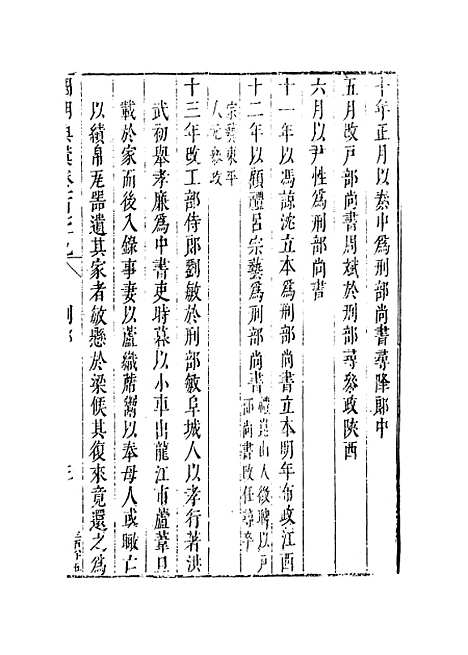 十年正月以秦中爲刑部尚書尋降郎中
五月改戸部尚書周斌於刑部尋參政陝西
六月以尹性爲刑部尚書
十一年以馮諒沈立本爲刑部尚書立本明年布政江西
十二年以顧禮呂宗藝爲刑部尚書禮崑山人徵聘以戸
部尚書改任尋卒
宗藝東平
人尤參政
十三年改工部侍郎劉敏於刑部敏阜城人以孝行著洪
武初舉孝廉爲中書吏時暮以小車出龍江市蘆葦旦
載於家而後入錄事妻以蘆織蓆鬻以奉母人或瞰亡
以績帛瓦器遺其家者敏懸於梁俟其復來竟還之爲
刑部
三